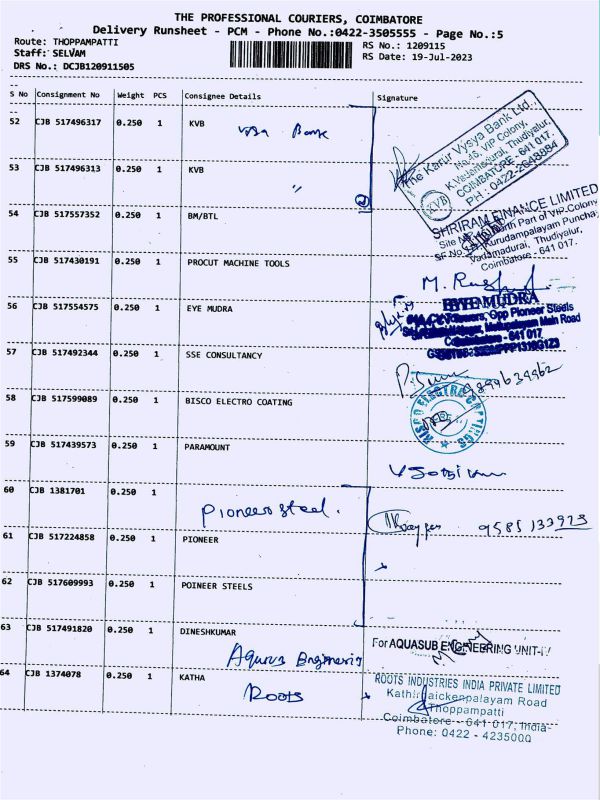 THE PROFESSIONAL COURIERS, COIMBATORE
Delivery Runsheet - PCM - Phone No.:0422-3505555 - Page No.:5
Route: THOPPAMPATTI RS No.: 1209115
Staff: SELVAM RS Date: 19-Jul-2023
DRS No.: DCJB120911505
S No Consignment No Weight PCS Consignee Details Signature
52 CJB 517496317 0.250 1 KVB
Bank
The Karur Vysya Bank Ltd.,
No.46, VIP Colony,
K.Vadamadurai, Thudiyalur,
COIMBATORE - 641 017.
PH : 0422-2648884
KVB
53 CJB 517496313 0.250 1 KVB
"
54 CJB 517557352 0.250 1 BM/BTL
SHRIRAM FINANCE LIMITED
North Part of VIP-Colony
Kurudampalayam Punchai,
Vadamadurai, Thudiyalur,
Coimbatore - 641 017.
55 CJB 517430191 0.250 1 PROCUT MACHINE TOOLS
56 CJB 517554575 0.250 1 EYE MUDRA
EYEMUDRA
Opp Pioneer Steels
Main Road
Coimbatore - 641 017
57 CJB 517492344 0.250 1 SSE CONSULTANCY
9899639962
58 CJB 517599089 0.250 1 BISCO ELECTRO COATING
59 CJB 517439573 0.250 1 PARAMOUNT
60 CJB 1381701 0.250 1
Pioneer steel.
9585133923
61 CJB 517224858 0.250 1 PIONEER
62 CJB 517609993 0.250 1 POINEER STEELS
63 CJB 517491820 0.250 1 DINESHKUMAR
For AQUASUB ENGINEERING UNIT-IV
64 CJB 1374078 0.250 1 KATHA
Roots
ROOTS INDUSTRIES INDIA PRIVATE LIMITED
Kathirnaickenpalayam Road
Thoppampatti
Coimbatore - 641 017, India-
Phone: 0422 - 4235000